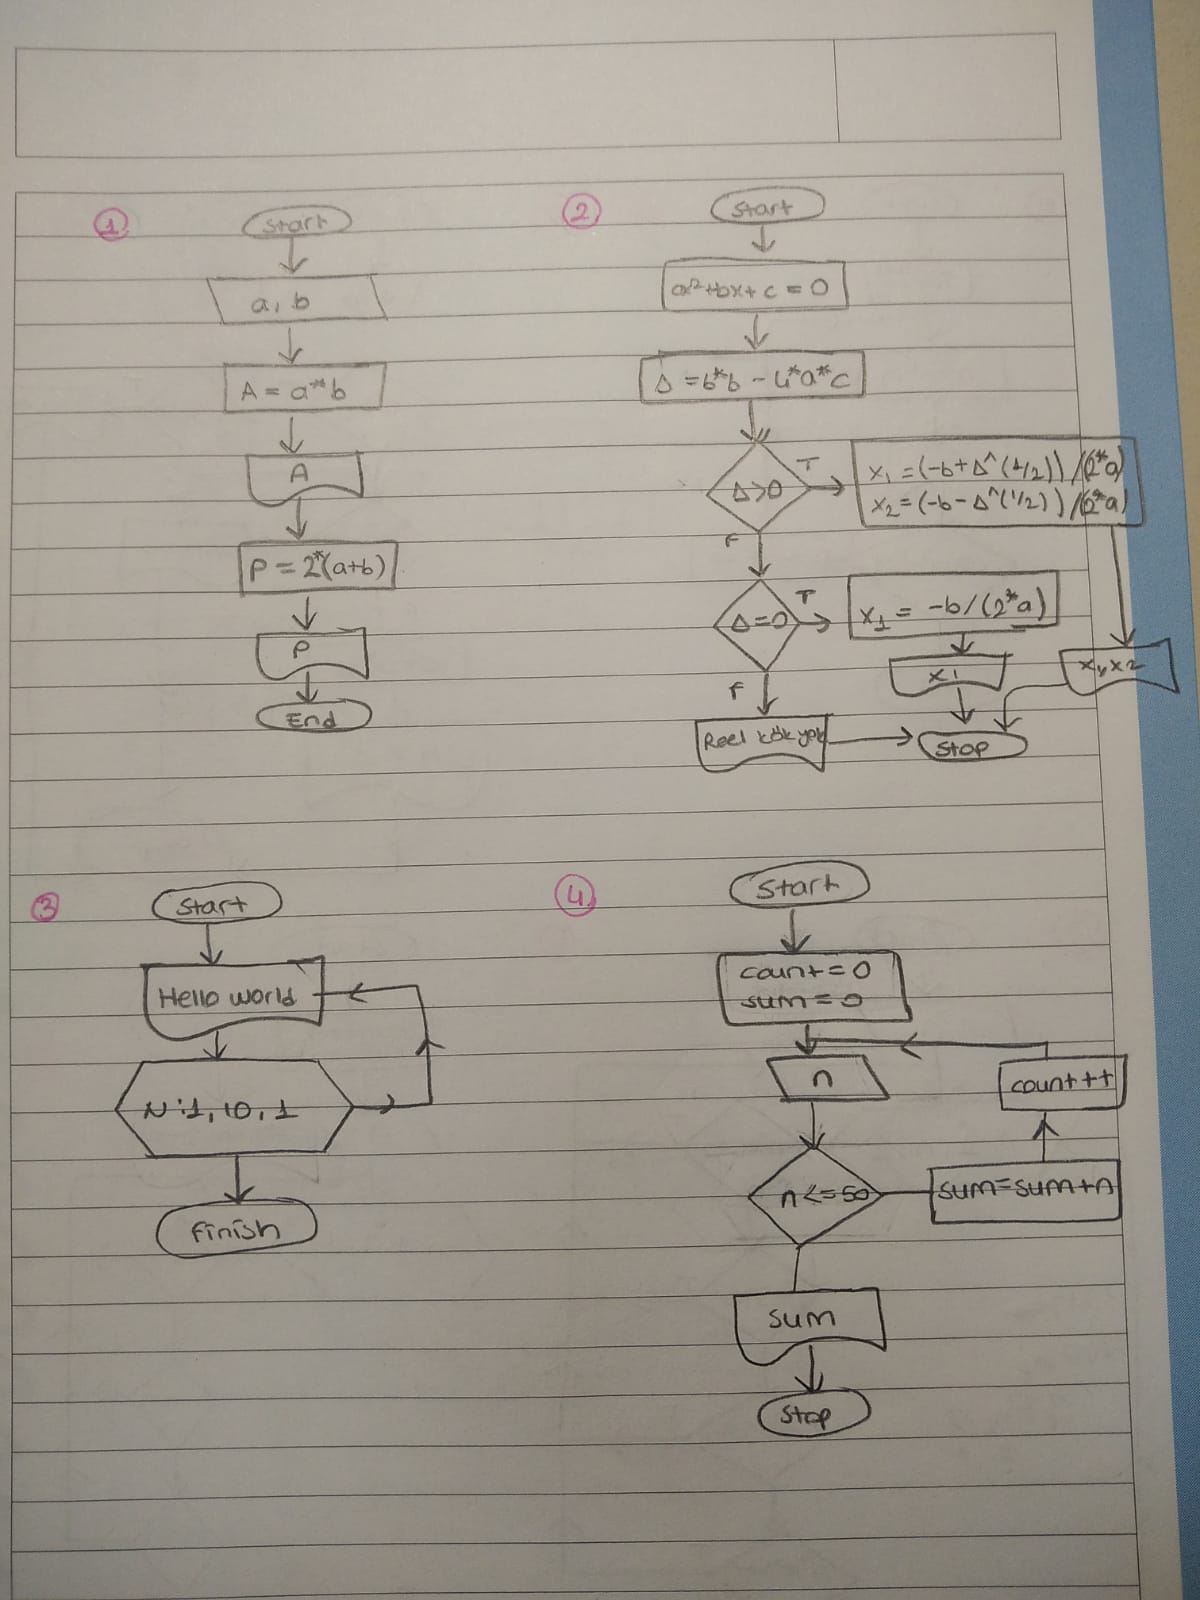 1
Start
a, b
A = a*b
A
P = 2*(a+b)
P
End
2
Start
ax²+bx+c = 0
Δ = b*b - 4*a*c
Δ>0
T
x₁ = (-b+Δ^(1/2))/(2*a)
x₂ = (-b-Δ^(1/2))/(2*a)
F
Δ=0
T
x₁ = -b/(2*a)
x1
x1, x2
F
Reel kök yok
Stop
3
Start
Hello world
N:1, 10, 1
Finish
4
Start
count = 0
sum = 0
n
count++
n<=50
sum=sum+n
sum
Stop